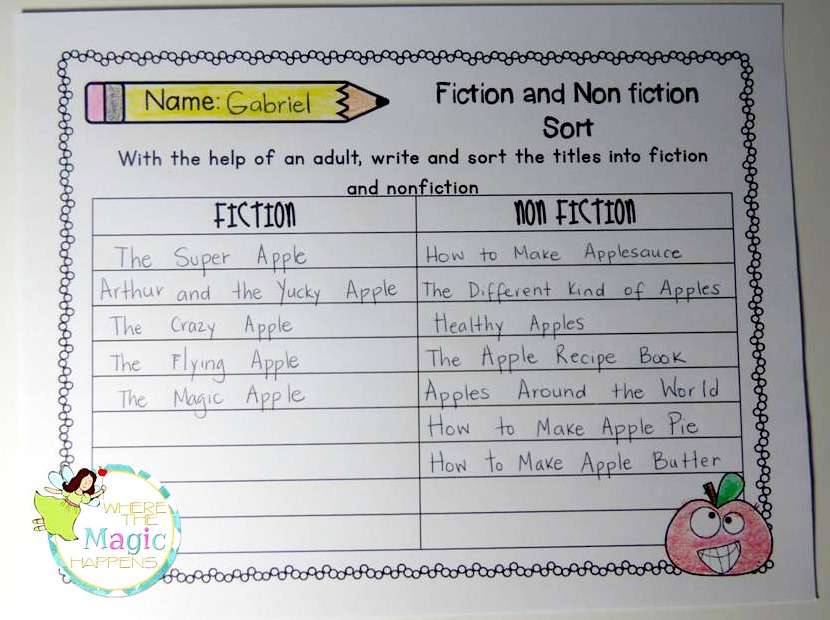 Name: Gabriel
Fiction and Non fiction
Sort
With the help of an adult, write and sort the titles into fiction
and nonfiction
FICTION
NON FICTION
The Super Apple
How to Make Applesauce
Arthur and the Yucky Apple
The Different Kind of Apples
The Crazy Apple
Healthy Apples
The Flying Apple
The Apple Recipe Book
The Magic Apple
Apples Around the World
How to Make Apple Pie
How to Make Apple Butter
WHERE
THE
Magic
HAPPENS